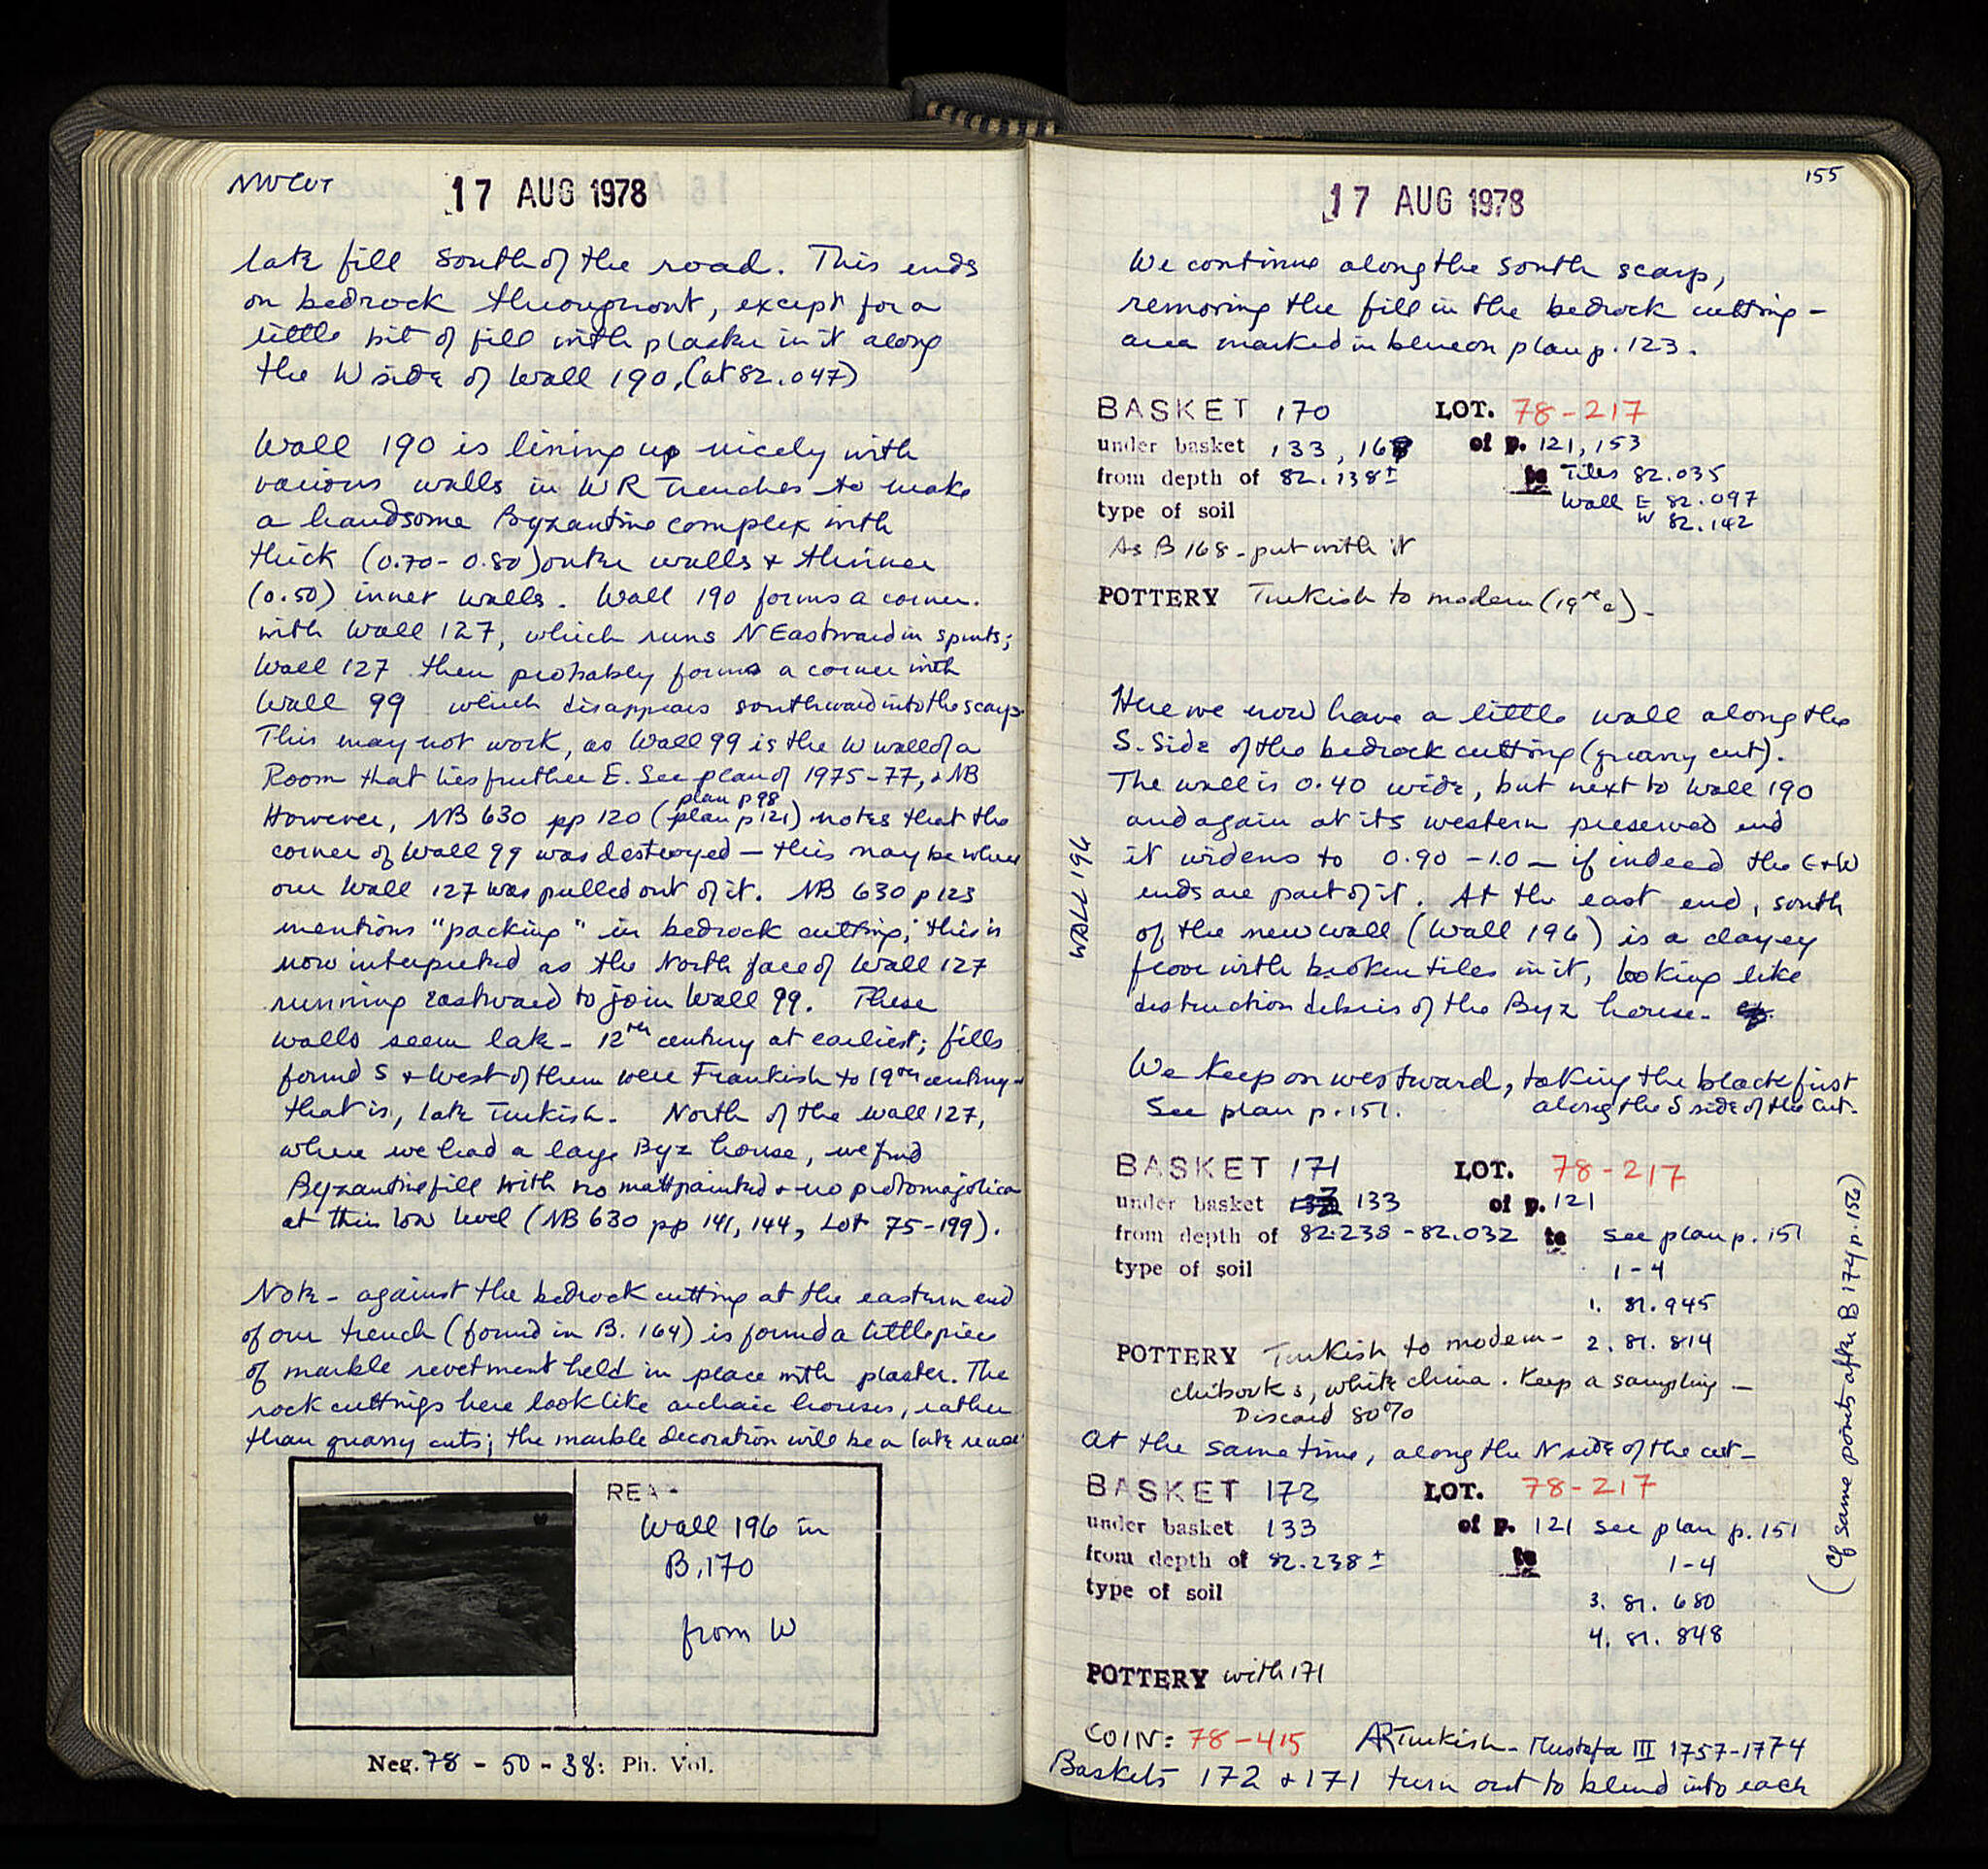 NW Cut
17 AUG 1978
late fill south of the road. This ends
on bedrock throughout, except for a
little bit of fill with plaster in it along
the W side of Wall 190, (at 82.047)
Wall 190 is lining up nicely with
various walls in WR Trenches to make
a handsome Byzantine complex with
thick (0.70-0.80) outer walls & thinner
(0.50) inner walls. Wall 190 forms a corner
with Wall 127, which runs N Eastward in spurts;
Wall 127 then probably forms a corner with
Wall 99 which disappears southward into the scarp.
This may not work, as Wall 99 is the W wall of a
Room that lies further E. See plan of 1975-77, & NB
plan p 98
However, NB 630 pp 120 (plan p 121) notes that the
corner of Wall 99 was destroyed — this may be where
our Wall 127 was pulled out of it. NB 630 p 123
mentions "packing" in bedrock cutting; this is
now interpreted as the North face of Wall 127
running eastward to join Wall 99. These
walls seem late - 12th century at earliest; fills
found S & West of them were Frankish to 19th century -
that is, late Turkish. North of the wall 127,
where we had a large Byz house, we find
Byzantine fill with no mattpainted & no protomajolica
at this low level (NB 630 pp 141, 144, Lot 75-199).
Note - against the bedrock cutting at the eastern end
of our trench (found in B. 164) is found a little piece
of marble revetment held in place with plaster. The
rock cuttings here look like archaic houses, rather
than quarry cuts; the marble decoration will be a late reuse
Wall 196 in
B.170
from W
Neg. 78 - 50 - 38: Ph. Vol.
155
17 AUG 1978
We continue along the south scarp,
removing the fill in the bedrock cutting -
area marked in blue on plan p. 123.
BASKET 170 LOT. 78-217
under basket 133, 168 of p. 121, 153
from depth of 82.138± to Tiles 82.035
Wall E 82.097
type of soil W 82.142
As B 168 - put with it
POTTERY Turkish to modern (19th c) -
Here we now have a little wall along the
S. Side of the bedrock cutting (quarry cut).
The wall is 0.40 wide, but next to Wall 190
and again at its western preserved end
it widens to 0.90 - 1.0 — if indeed the E & W
ends are part of it. At the east end, south
of the new wall (Wall 196) is a clayey
floor with broken tiles in it, looking like
destruction debris of the Byz house.
WALL 196
We keep on westward, taking the black first
See plan p. 151. along the S side of the cut.
BASKET 171 LOT. 78-217
under basket 133 of p. 121
from depth of 82.238 - 82.032 to see plan p. 151
type of soil 1-4
1. 81.945
2. 81.814
POTTERY Turkish to modern -
chibouks, white china. Keep a sampling —
Discard 80%
At the same time, along the N side of the cut -
BASKET 172 LOT. 78-217
under basket 133 of p. 121 see plan p. 151
from depth of 82.238± to 1-4
type of soil
3. 81.680
4. 81.848
(Cf same points after B 174 p. 156)
POTTERY with 171
COIN: 78-415 AR Turkish - Mustafa III 1757-1774
Baskets 172 & 171 turn out to blend into each